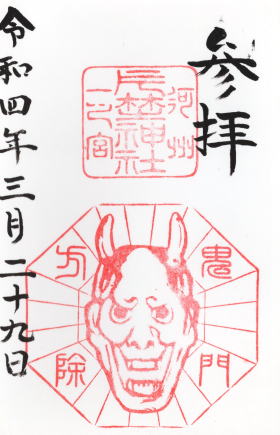 参拝
河州
片埜神社
一之宮
鬼門
方除
令和四年三月二十九日